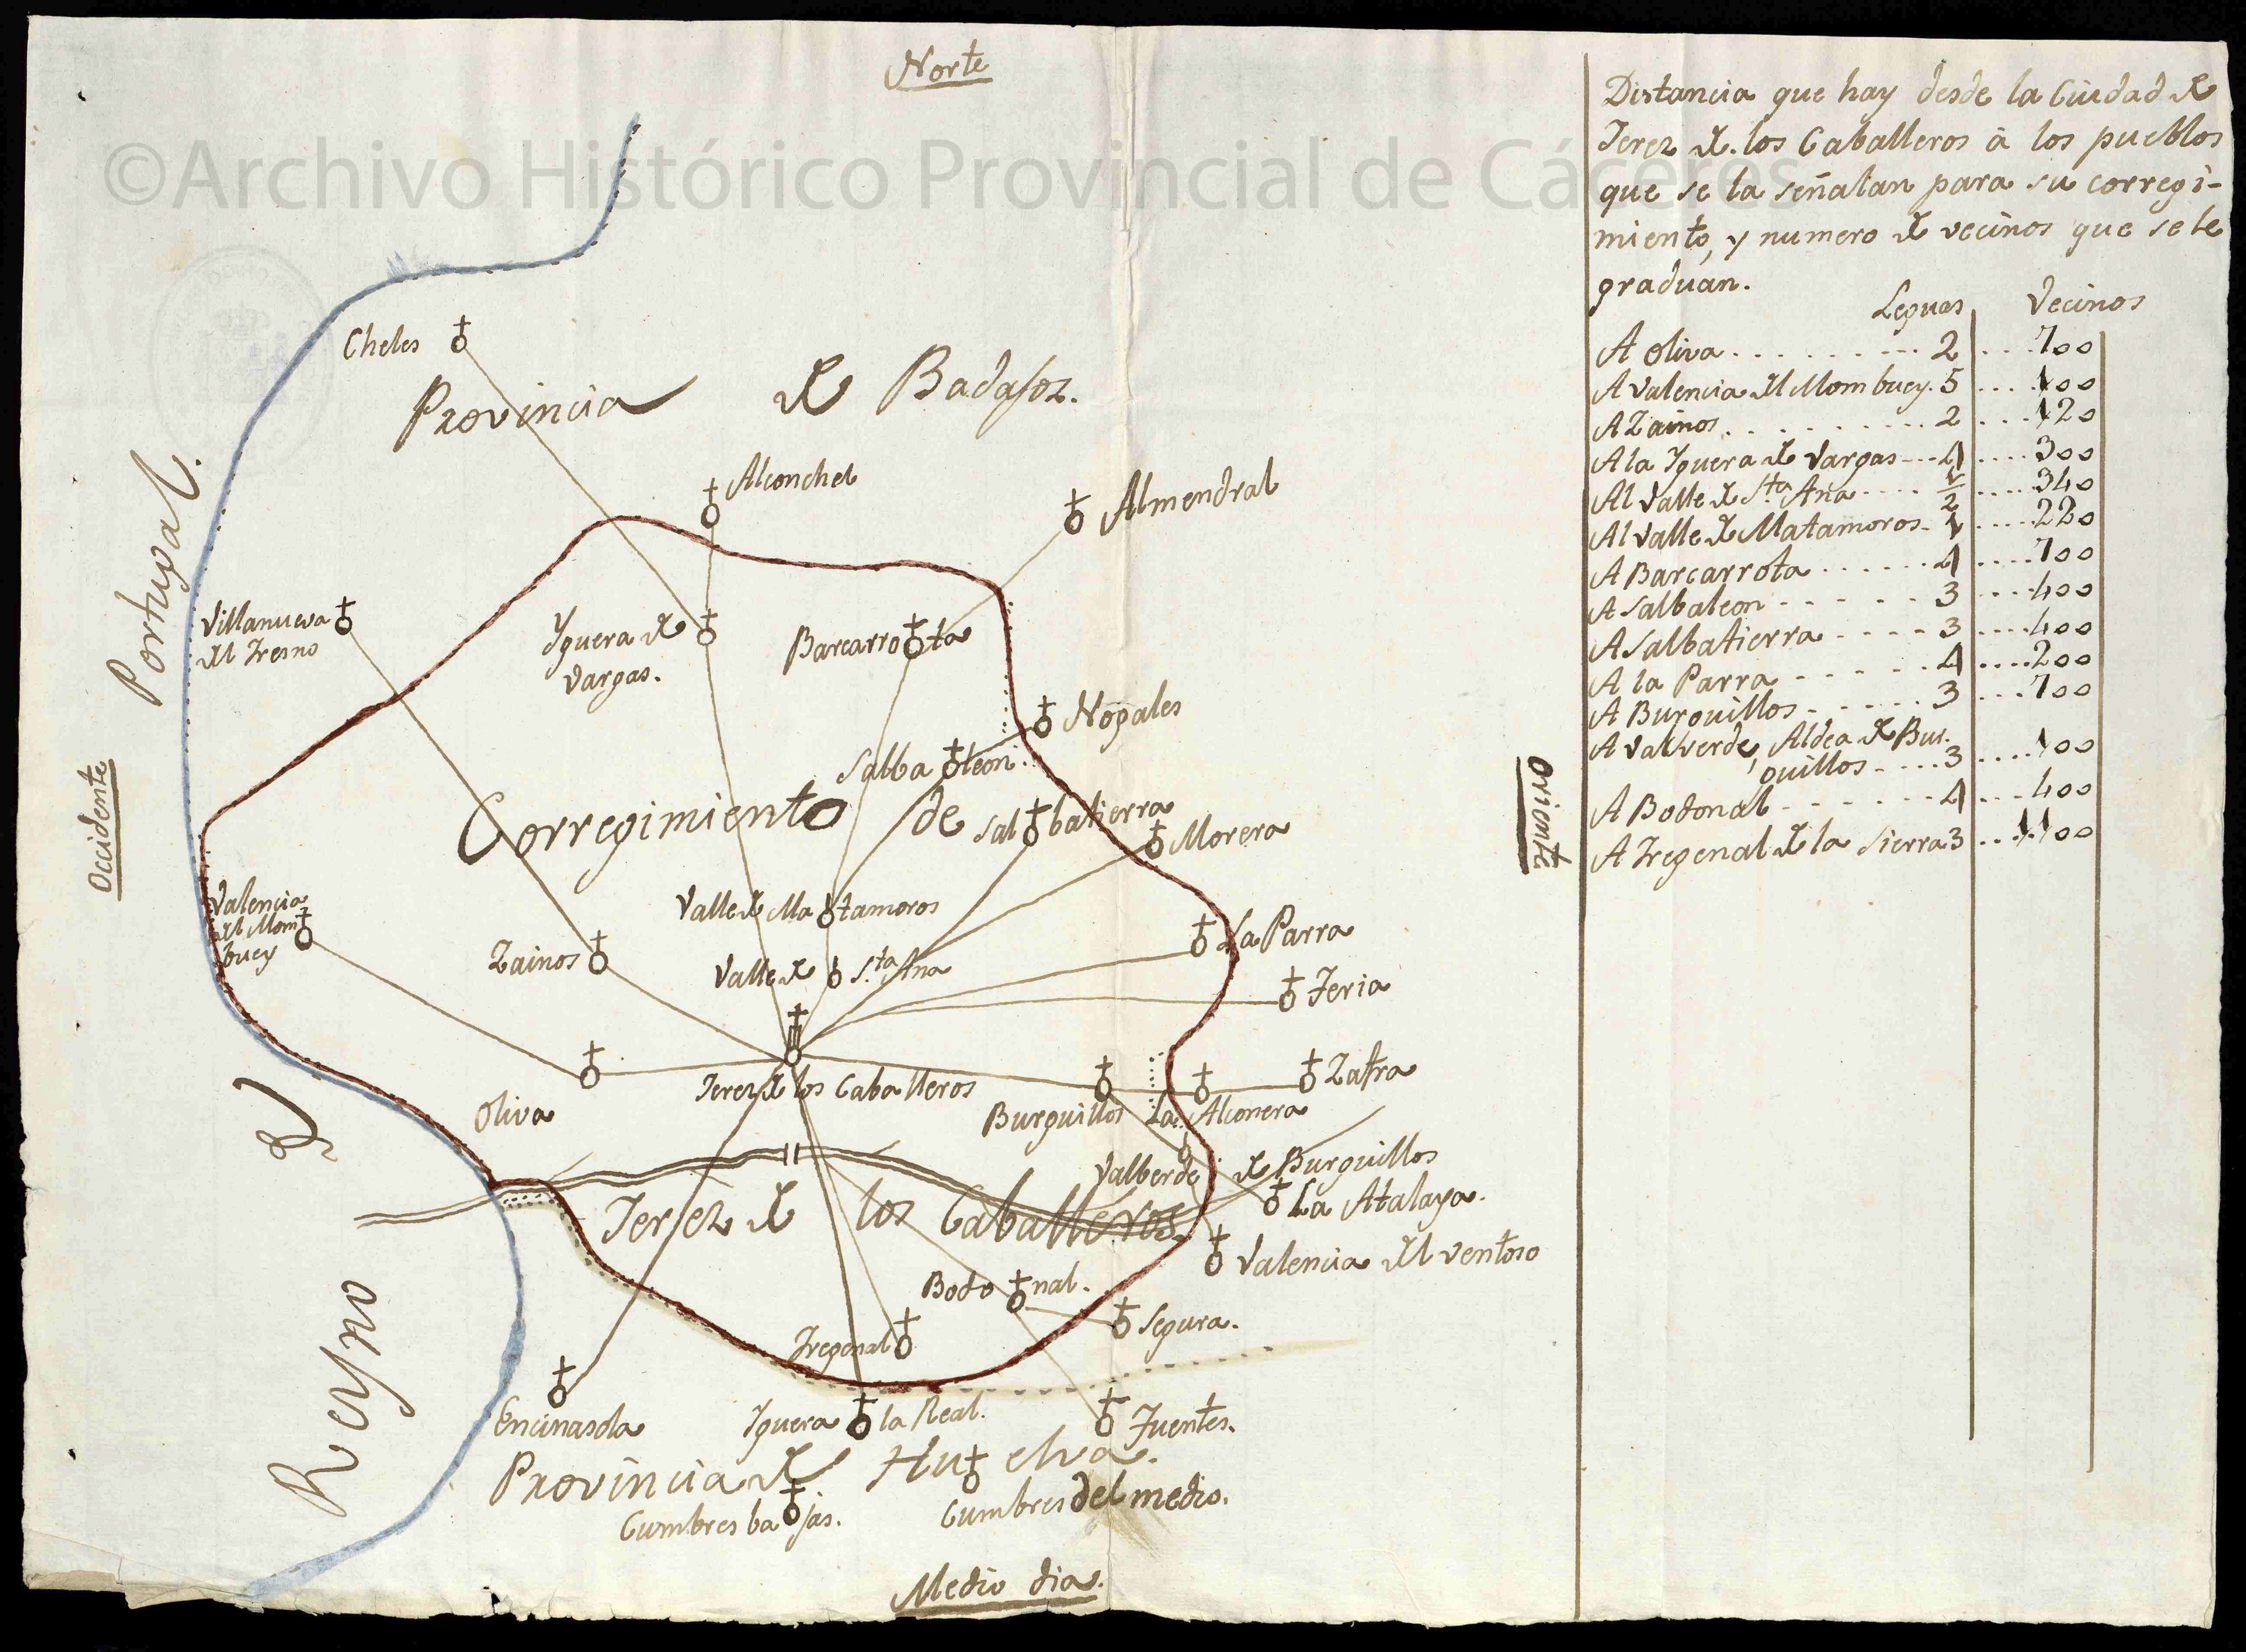 Norte
©Archivo Histórico Provincial de Cáceres
Cheles
Provincia de Badajoz.
Alconchel
Almendral
Portugal.
Villanueva
del Fresno
Yguera de
Vargas.
Barcarrota
Nogales
Salbaleon.
Occidente
Corregimiento de
Salbatierra
Morera
Valencia
del Mom
buey
Valle de Matamoros
Zainos
Valle de Sta. Ana
La Parra
Feria
Oliva
Jerez de los Caballeros
Burguillos
La Alconera
Zafra
de
Valberde de Burguillos
La Atalaya.
Jerez de los Caballeros.
Valencia del Ventoso
Reyno
Bodonal.
Segura.
Fregenal
Encinasola
Yguera la Real.
Fuentes.
Provincia de Huelva.
Cumbres bajas.
Cumbres del medio.
Medio dia.
Oriente
Distancia que hay desde la Ciudad de
Jerez de los Caballeros á los pueblos
que se la señalan para su corregi-
miento, y numero de vecinos que se le
graduan.
Leguas Vecinos
A Oliva . . . . . . . . . 2 . . . 700
A Valencia del Mombuey. 5 . . . 100
A Zainos . . . . . . . . . 2 . . . 120
A la Yguera de Vargas --- 4 . . . . 300
Al Valle de Sta. Ana . . . . 1/2 . . . . 340
Al Valle de Matamoros - 1 . . . . 220
A Barcarrota . . . . . . 4 . . . . 700
A Salbaleon - - - - - 3 . . . 400
A Salbatierra - - - - 3 . . . . 400
A la Parra - - - - - 4 . . . . 200
A Burguillos - - - - - 3 . . . 700
A Valverde, Aldea de Bur.
guillos - - - - 3 . . . . 100
A Bodonal - - - - - - 4 . . . 400
A Fregenal de la Sierra 3 . . . 1100